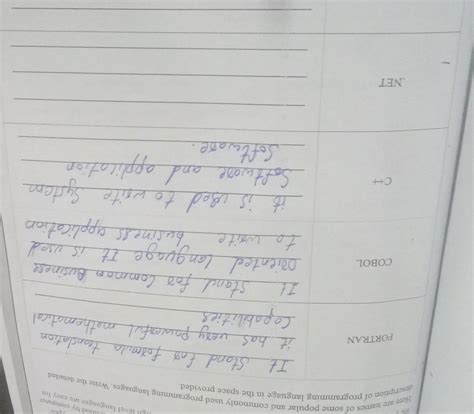 Here are names of some popular and commonly used programming languages. Write the detailed
description of programming language in the space provided.
FORTRAN
It Stand for formula translation
it has very powerful mathematical
Capabilities
COBOL
It Stand for Common Business
Oriented language It is used
to write business application
C++
it is used to write System
Software and application
Software.
.NET